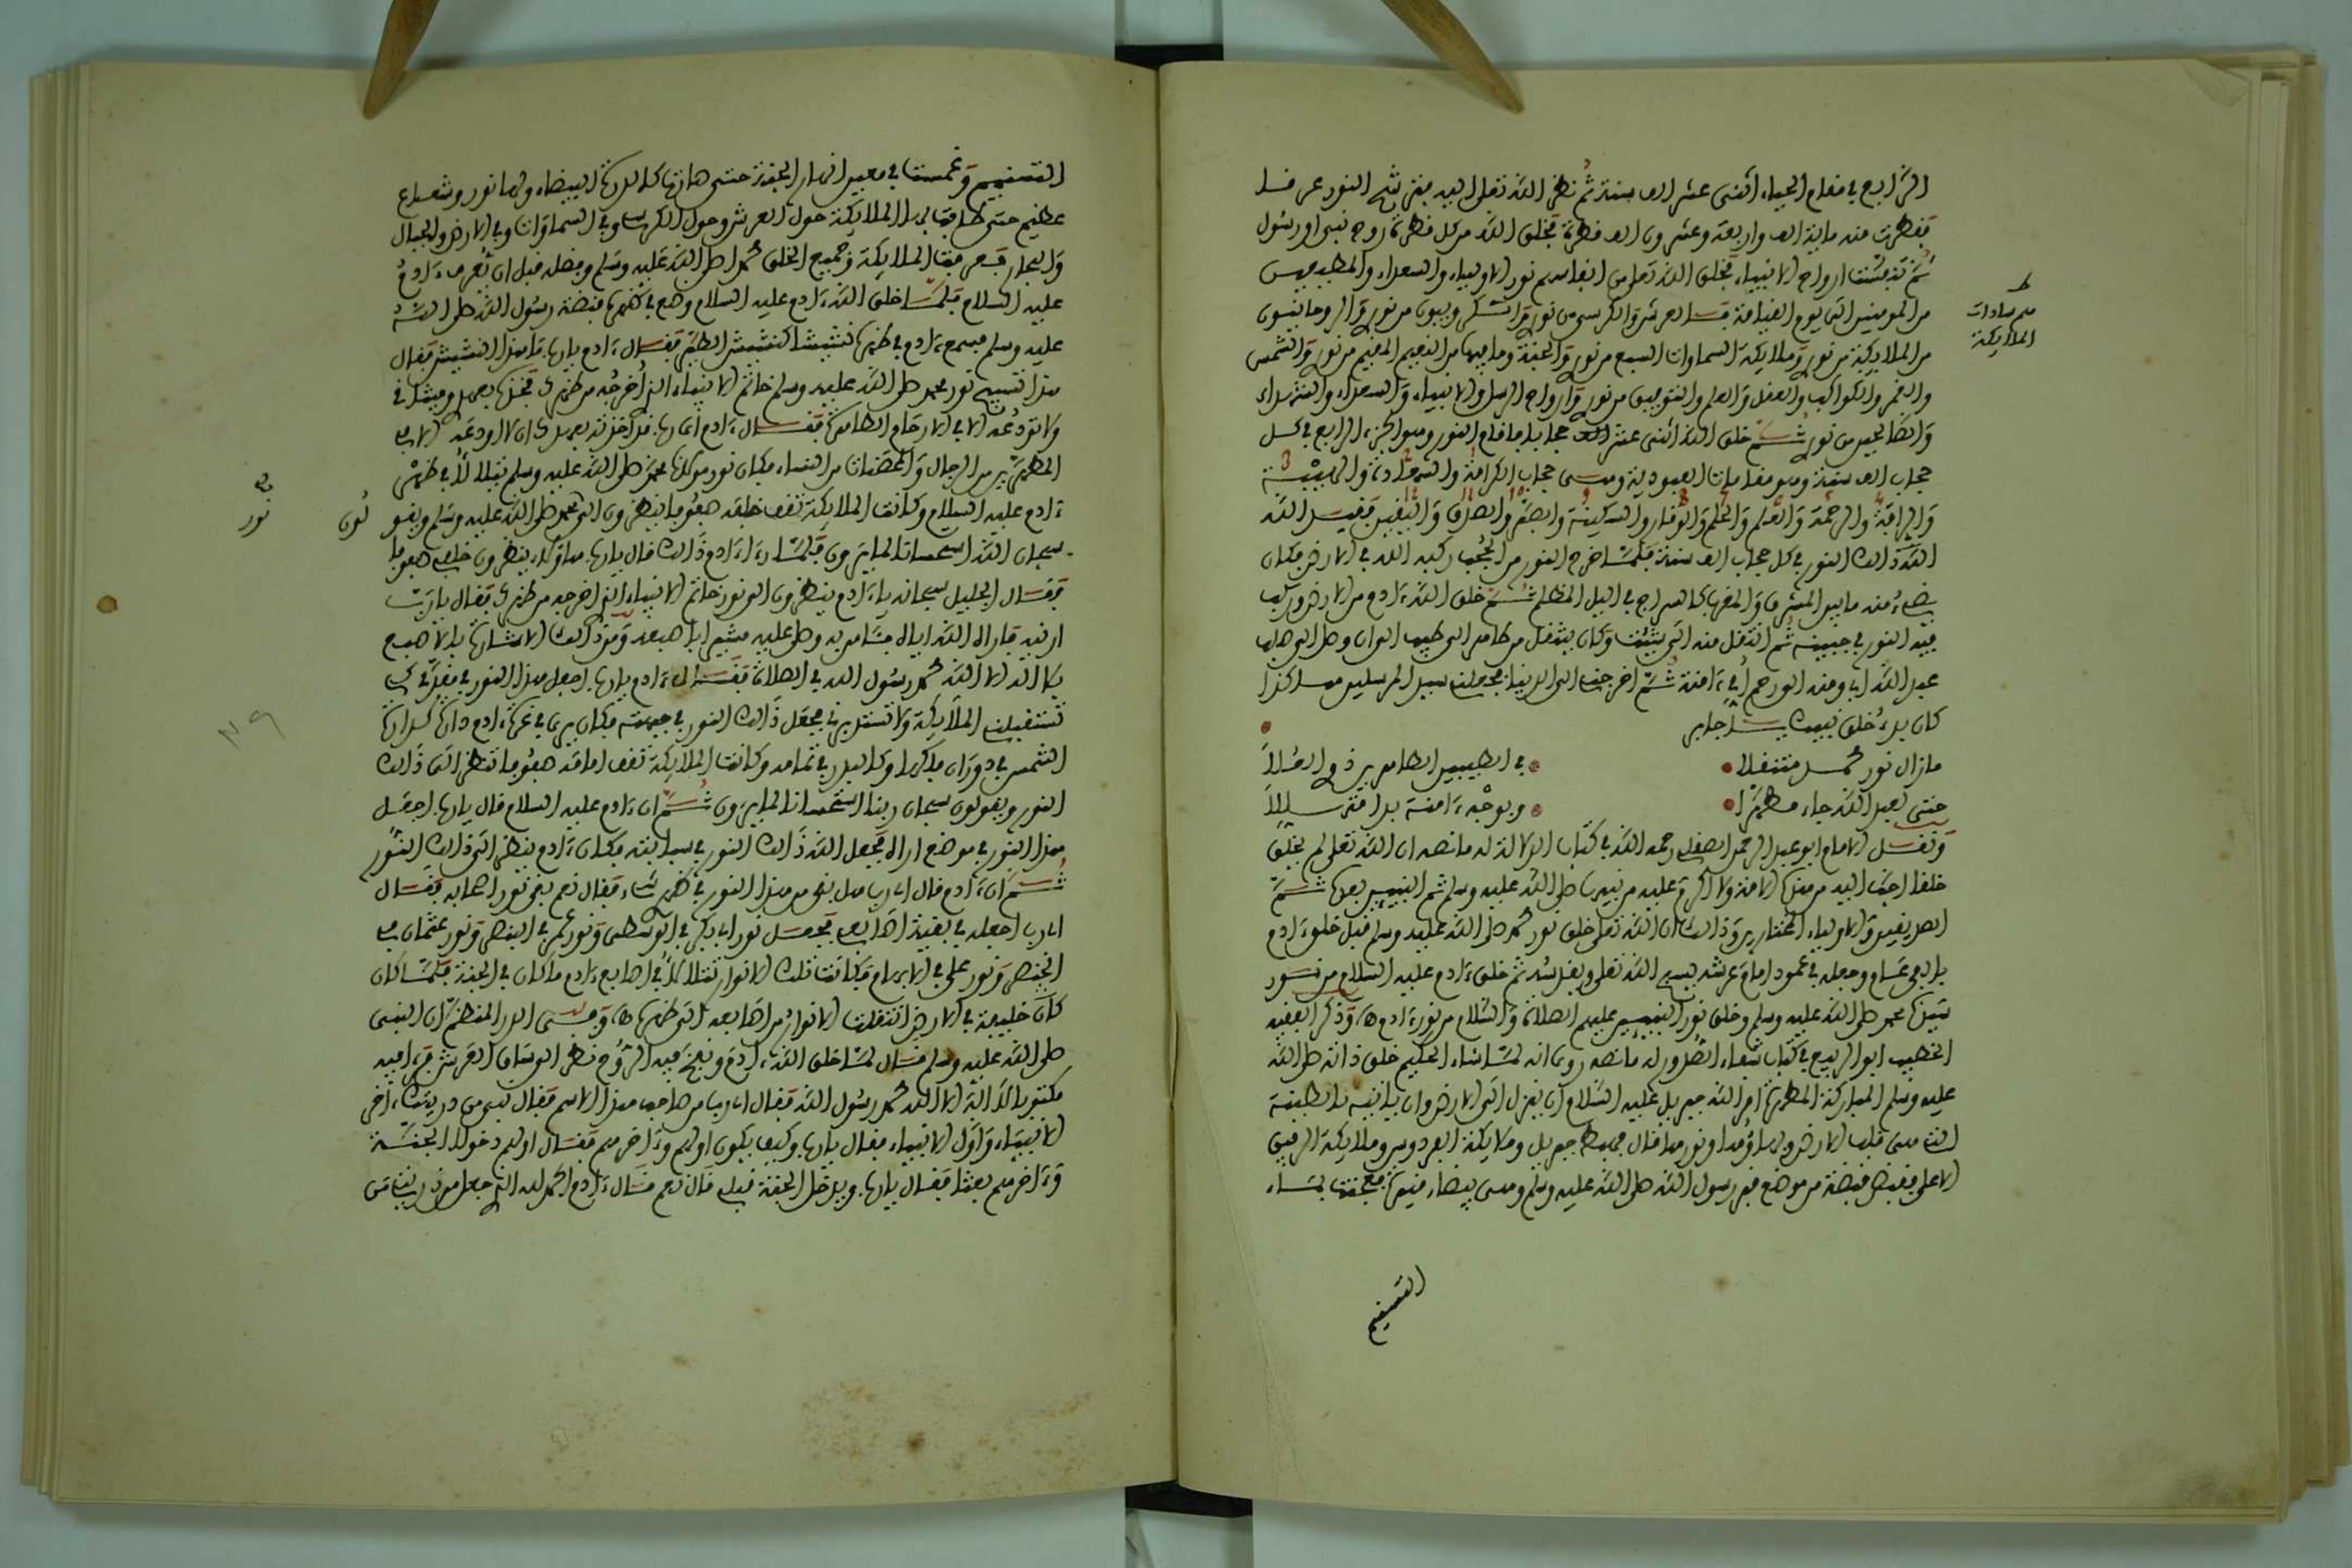 الرابع في مقام الحياء اثنى عشر الف سنة ثم نظر الله تعلى اليه فترشح النور عرفا
فقطرت منه ماية الف واربعة وعشرون الف قطرة فخلق الله من كل قطرة روح نبي او رسول
ثم تنفست ارواح الانبياء فخلق الله تعلى من انفاسهم نور الاولياء والسعداء والمطيعين
من المومنين الى يوم القيامة فالعرش والكرسي من نوري والكروبيون من نوري والروحانيون
من الملايكة من نوري وملايكة السماوات السبع من نوري والجنة وما فيها من النعيم المقيم من نوري والشمس
والقمر والكواكب والعقل والعلم والتوفيق من نوري وارواح الرسل والانبياء والسعداء والشهداء
والصالحين من نوري ثم خلق الله اثنى عشر الف حجابا فاقام النور وهو الجزء الرابع في كل
حجاب الف سنة وهو مقامات العبودية وهي حجاب الكرامة والسعادة والهيبة
والرافة والرحمة والعلم والحلم والوقار والسكينة والصبر والصدق واليقين فغمس الله
الله ذالك النور في كل حجاب الف سنة فلما خرج النور من الحجب ركبه الله في الارض فكان
يضيء منه ما بين المشرق والمغرب كالسراج في اليل المظلم ثم خلق الله ءادم من الارض وركب
فيه النور في جبينه ثم انتقل منه الى شيث وكان ينتقل من طاهر الى طيب الى ان وصل الى صلب
عبد الله ابي ومنه الى رحم امي ءامنة ثم اخرجني الى الدنيا فجعلني سيد المرسلين هاكذا
كان بدء خلق نبيك يا جابر
مازال نور محمد متنقلا • في الطيبين الطاهرين ذوي العلا
حتى لعبد الله جاء مطهرا • وبوجه ءامنة بدا متهللا
ونقل الامام ابو عبد الرحمن الصقلي رحمه الله في كتاب الدلالة له ما نصه ان الله تعلى لم يخلق
خلقا احب اليه من هذه الامة ولا اكرم عليه من نبيها صلى الله عليه وسلم ثم النبيين بعده ثم
الصديقين والاولياء المختارين وذالك ان الله تعلى خلق نور محمد صلى الله عليه وسلم قبل خلق ءادم
بالفي عام وجعله في عمود امام عرشه يسبح الله تعلى ويقدسه ثم خلق ءادم عليه السلام من نور
سيدنا محمد صلى الله عليه وسلم وخلق نور النبيين عليهم الصلاة والسلام من نور ءادم اه وذكر الفقيه
الخطيب ابو الربيع في كتاب شفاء الصدور له ما نصه روي انه لما شاء الحكيم خلق ذاته صلى الله
عليه وسلم المباركة المطهرة امر الله جبريل عليه السلام ان ينزل الى الارض وان ياتيه بالطينة
التي هي قلب الارض وبهاؤها ونورها قال فهبط جبريل وملايكة الفردوس وملايكة الرفيق
الاعلى فقبض قبضة من موضع قبر رسول الله صلى الله عليه وسلم وهي بيضاء منيرة فعجنت بماء
التسنيم
من سادات
الملايكة
التسنيم وغمست في معين انهار الجنة حتى صارت كالدرة البيضاء ولها نور وشعاع
عظيم حتى طافت بها الملايكة حول العرش وحول الكرسي وفي السماوات وفي الارض والجبال
والبحار فعرفت الملايكة وجميع الخلق محمدا صلى الله عليه وسلم وفضله قبل ان تعرف ءادم
عليه السلام فلما خلق الله ءادم عليه السلام وضع في ظهره قبضة رسول الله صلى الله
عليه وسلم فسمع ءادم في ظهره نشيشا كنشيش الطير فقال ءادم يا رب ما هذا النشيش فقال
هذا تسبيح نور محمد صلى الله عليه وسلم خاتم الانبياء الذي اخرجه من ظهرك فخذه بعهدي وميثاقي
ولا تودعه الا في الارحام الطاهرة فقال ءادم اي رب قد اخذته بعهدك ان لا اودعه الا في
المطهرين من الرجال والمحصنات من النساء فكان نور مولانا محمد صلى الله عليه وسلم يتلالا في ظهر
ءادم عليه السلام وكانت الملايكة تقف خلفه صفوفا ينظرون الى نور محمد صلى الله عليه وسلم ويقولون
سبحان الله استحسانا لما يرون فلما رءا ءادم ذالك قال يا رب ما هؤلاء ينظرون خلفي صفوفا
فقال الجليل سبحانه يا ءادم ينظرون الى نور خاتم الانبياء الذي اخرجه من ظهرك فقال يا رب
ارنيه فاراه الله اياه فئامن به وصلى عليه مشيرا باصبعه ومن ذالك الاشارة بالاصبع
بلا اله الا الله محمد رسول الله في الصلاة فقال ءادم يا رب اجعل هذا النور في مقدمي كي
تستقبلني الملايكة ولا تستدبرني فجعل ذالك النور في جبهته فكان يرى في غرة ءادم دارة كدارة
الشمس في دوران فلكها وكالبدر في تمامه وكانت الملايكة تقف امامه صفوفا تنظر الى ذالك
النور ويقولون سبحان ربنا استحسانا لما يرون ثم ان ءادم عليه السلام قال يا رب اجعل
هذا النور في موضع اراه فجعل الله ذالك النور في سبابته فكان ءادم ينظر الى ذالك النور
ثم ان ءادم قال اي رب هل بقي من هذا النور في ظهري شيء فقال نعم بقي نور اصحابه فقال
اي رب اجعله في بقية اصابعي فجعل نور ابي بكر في الوسطى ونور عمر في البنصر ونور عثمان في
الخنصر ونور علي في الابهام فكانت تلك الانوار تتلالا في اصابع ءادم ما كان في الجنة فلما كان
خليفة في الارض انتقلت الانوار من اصابعه الى ظهره اه وفي الدر المنظم ان النبي
صلى الله عليه وسلم قال لما خلق الله ءادم ونفخ فيه الروح نظر الى ساق العرش فرءا فيه
مكتوبا لا اله الا الله محمد رسول الله فقال اي رب من صاحب هذا الاسم فقال نبي من ذريتك ءاخر
الانبياء واول الانبياء فقال يا رب وكيف يكون اولهم وءاخرهم فقال اولهم دخولا الجنة
وءاخرهم بعثا فقال يا رب ويدخل الجنة قبلي قال نعم قال ءادم الحمد لله الذي جعل من ذريتي من
نور